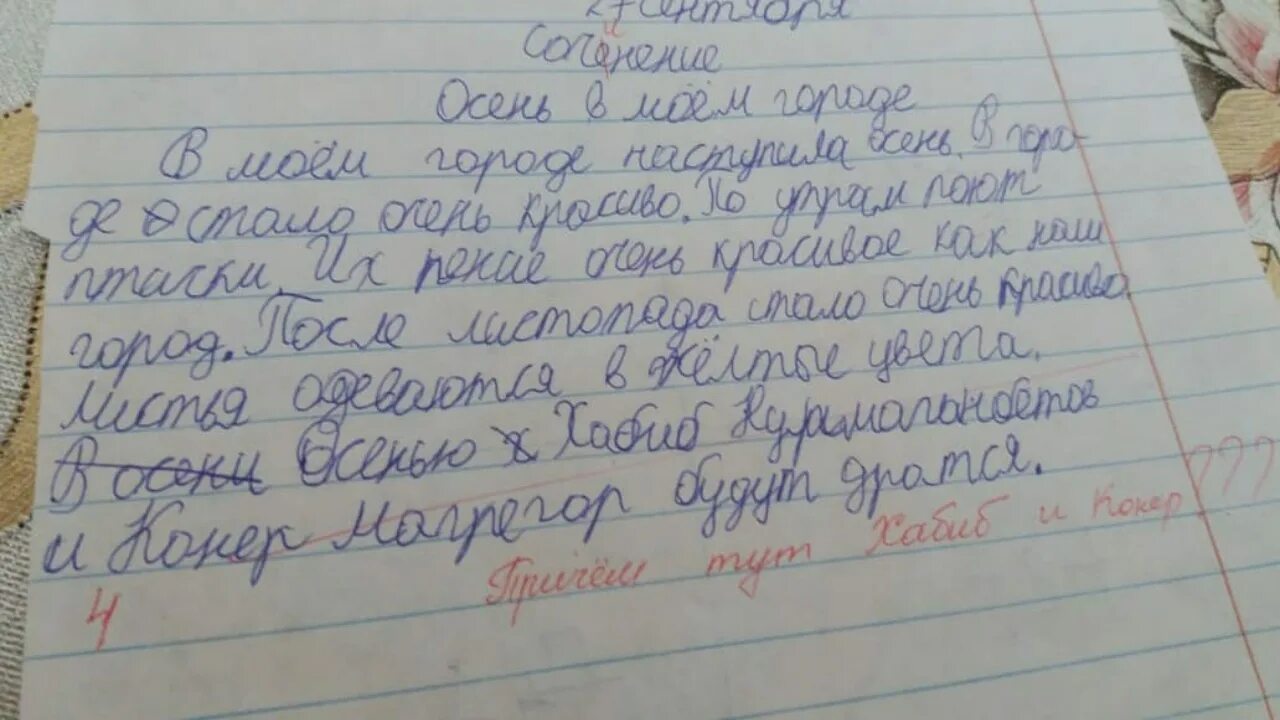 27 сентября
Сочинение
Осень в моём городе
В моём городе наступила осень. В горо-
де стало очень красиво. По утрам поют
птички. Их пение очень красивое как наш
город. После листопада стало очень красиво.
Листья одеваются в жёлтые цвета.
В осени Осенью х Хабиб Нурмагамаетов
и Конер Магрегор будут дратся.
Причём тут Хабиб и Конер ???
4